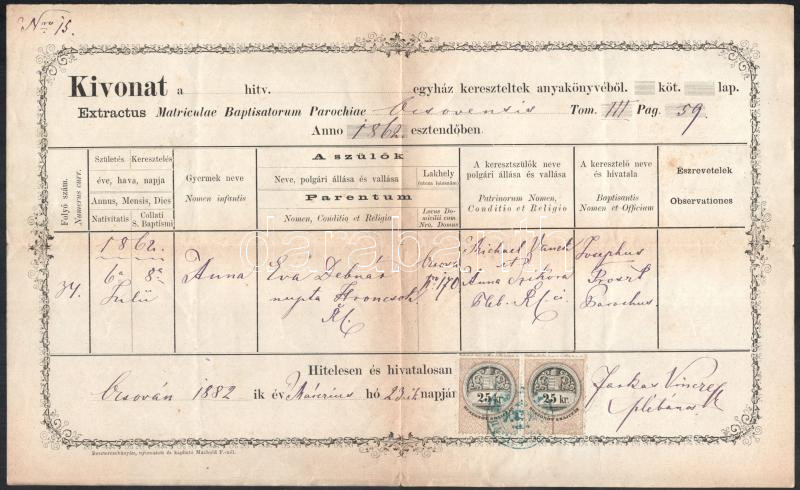 Nro 15.
Kivonat a hitv. egyház kereszteltek anyakönyvéből. köt. lap.
Extractus Matriculae Baptisatorum Parochiae Ocsovensis Tom. III Pag. 59
Anno 1862. esztendőben
Folyó szám.
Numerus curr.
Születés Keresztelés
éve, hava, napja
Annus, Mensis, Dies
Nativitatis Collati
S. Baptismi
Gyermek neve
Nomen infantis
A szülők
Neve, polgári állása és vallása
Parentum
Nomen, Conditio et Religio
Lakhely
(utcza házszám)
Locus Domicilii cum
Nro. Domus
A keresztszülők neve
polgári állása és vallása
Patrinorum Nomen,
Conditio et Religio
A keresztelő neve
és hivatala
Baptisantis
Nomen et Officium
Észrevételek
Observationes
34.
1862.
6a 8a
Julii
Anna
Eva Debnár
nupta
Ocsova
Nro 170
Michael
et
Anna
Pleb. R.C.
Josephus
Parochus.
Hitelesen és hivatalosan
Ocsován 1882 ik év Márczius hó 23ik napján
25 kr. 25 kr.
Farkas Vincze
plébános
Beszterczebányán, nyomatott és kapható Machold F.-nél.
darabanth